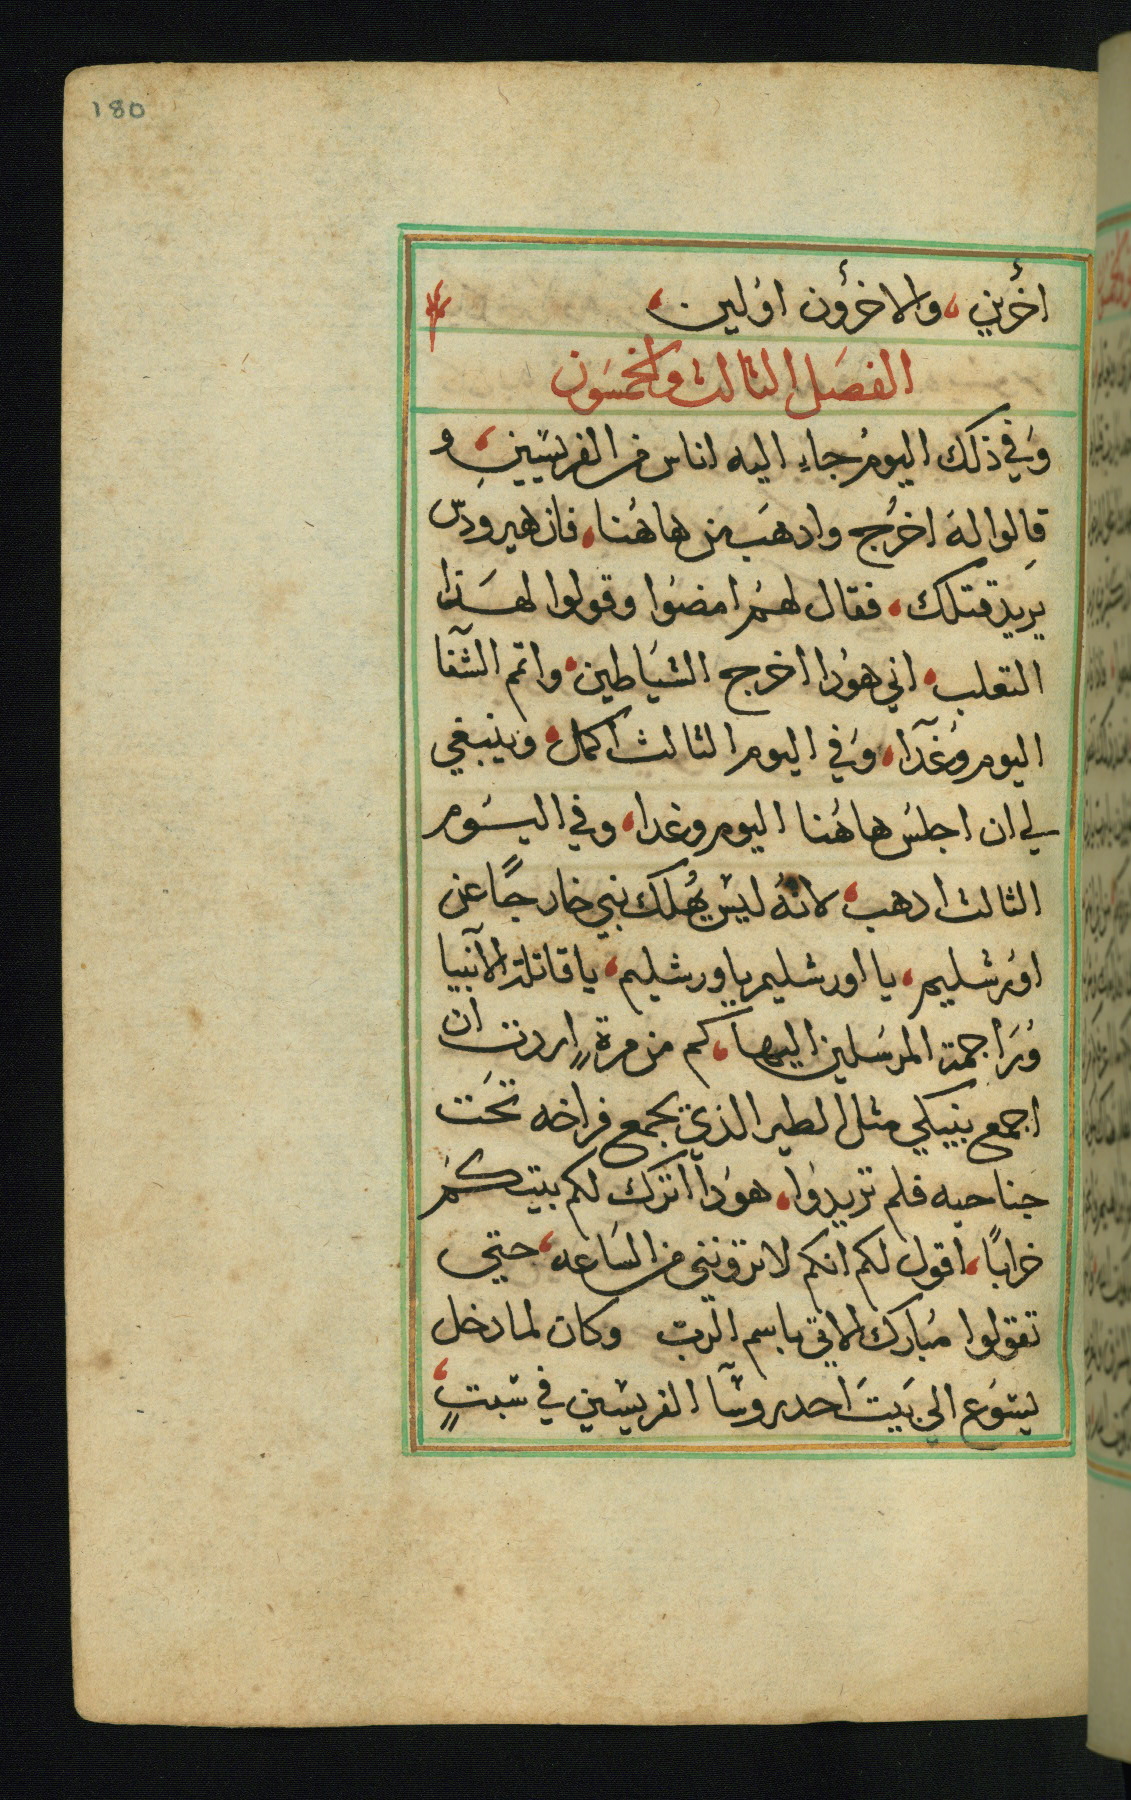 180
اخرين، والاخرون اولين،
الفصل الثالث والخمسون
وفي ذلك اليوم جاء اليه اناس من الفريسيين، و
قالوا له اخرج وادهب من هاهنا، فان هيرودس
يريد قتلك، فقال لهم امضوا وقولوا لهذا
التعلب، اني هودا اخرج الشياطين، واتم الشفا
اليوم وغدا، وفي اليوم الثالث اكمل، وينبغي
لي ان اجلس هاهنا اليوم وغدا، وفي اليوم
الثالث ادهب، لانه ليس يهلك نبي خارجًا عن
اورشليم، يا اورشليم ياورشليم، يا قاتلة الانبيا
وراجمة المرسلين اليها، كم من مرةٍ اردت ان
اجمع بنيكي مثل الطير الذي يجمع فراخه تحت
جناحيه فلم تريدوا، هودا اترك لكم بيتكم
خرابًا، اقول لكم انكم لا ترونني من الساعه، حتي
تقولوا مبارك الاتي باسم الرب وكان لما دخل
يشوع الي بيت احد روشا الفريسين في سبتٍ،